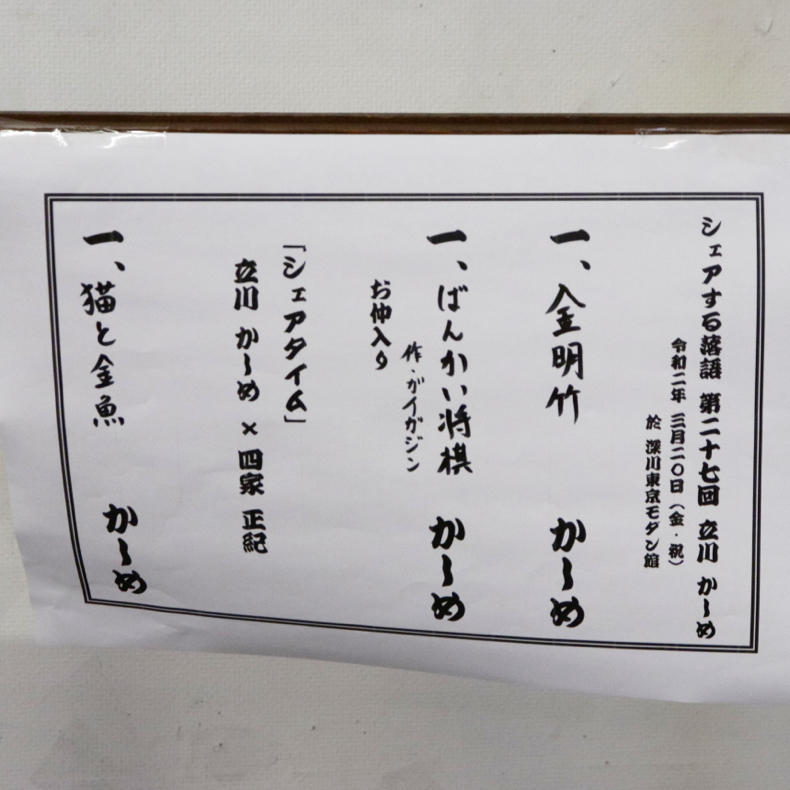 シェアする落語 第二十七回 立川 かしめ
令和二年 三月二〇日（金・祝）
於 深川東京モダン館
一、金明竹 かしめ
一、ばんかい将棋 かしめ
作・ガイガジン
お仲入り
「シェアタイム」
立川 かしめ × 四家 正紀
一、猫と金魚 かしめ